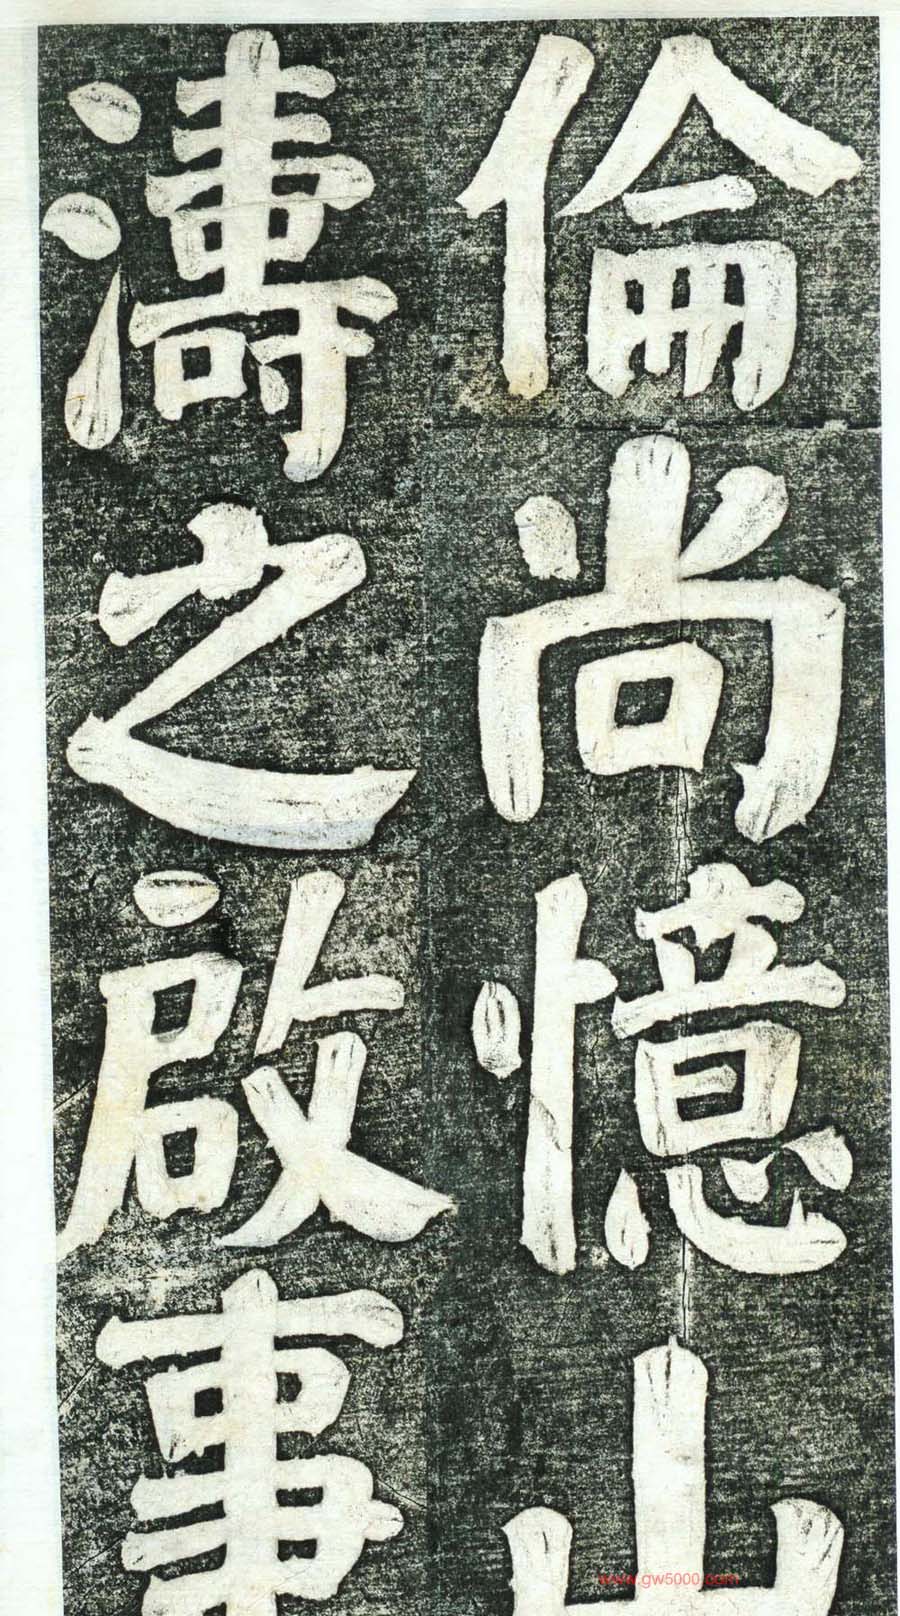 倫尚憶山
濤之啟事
www.gw5000.com